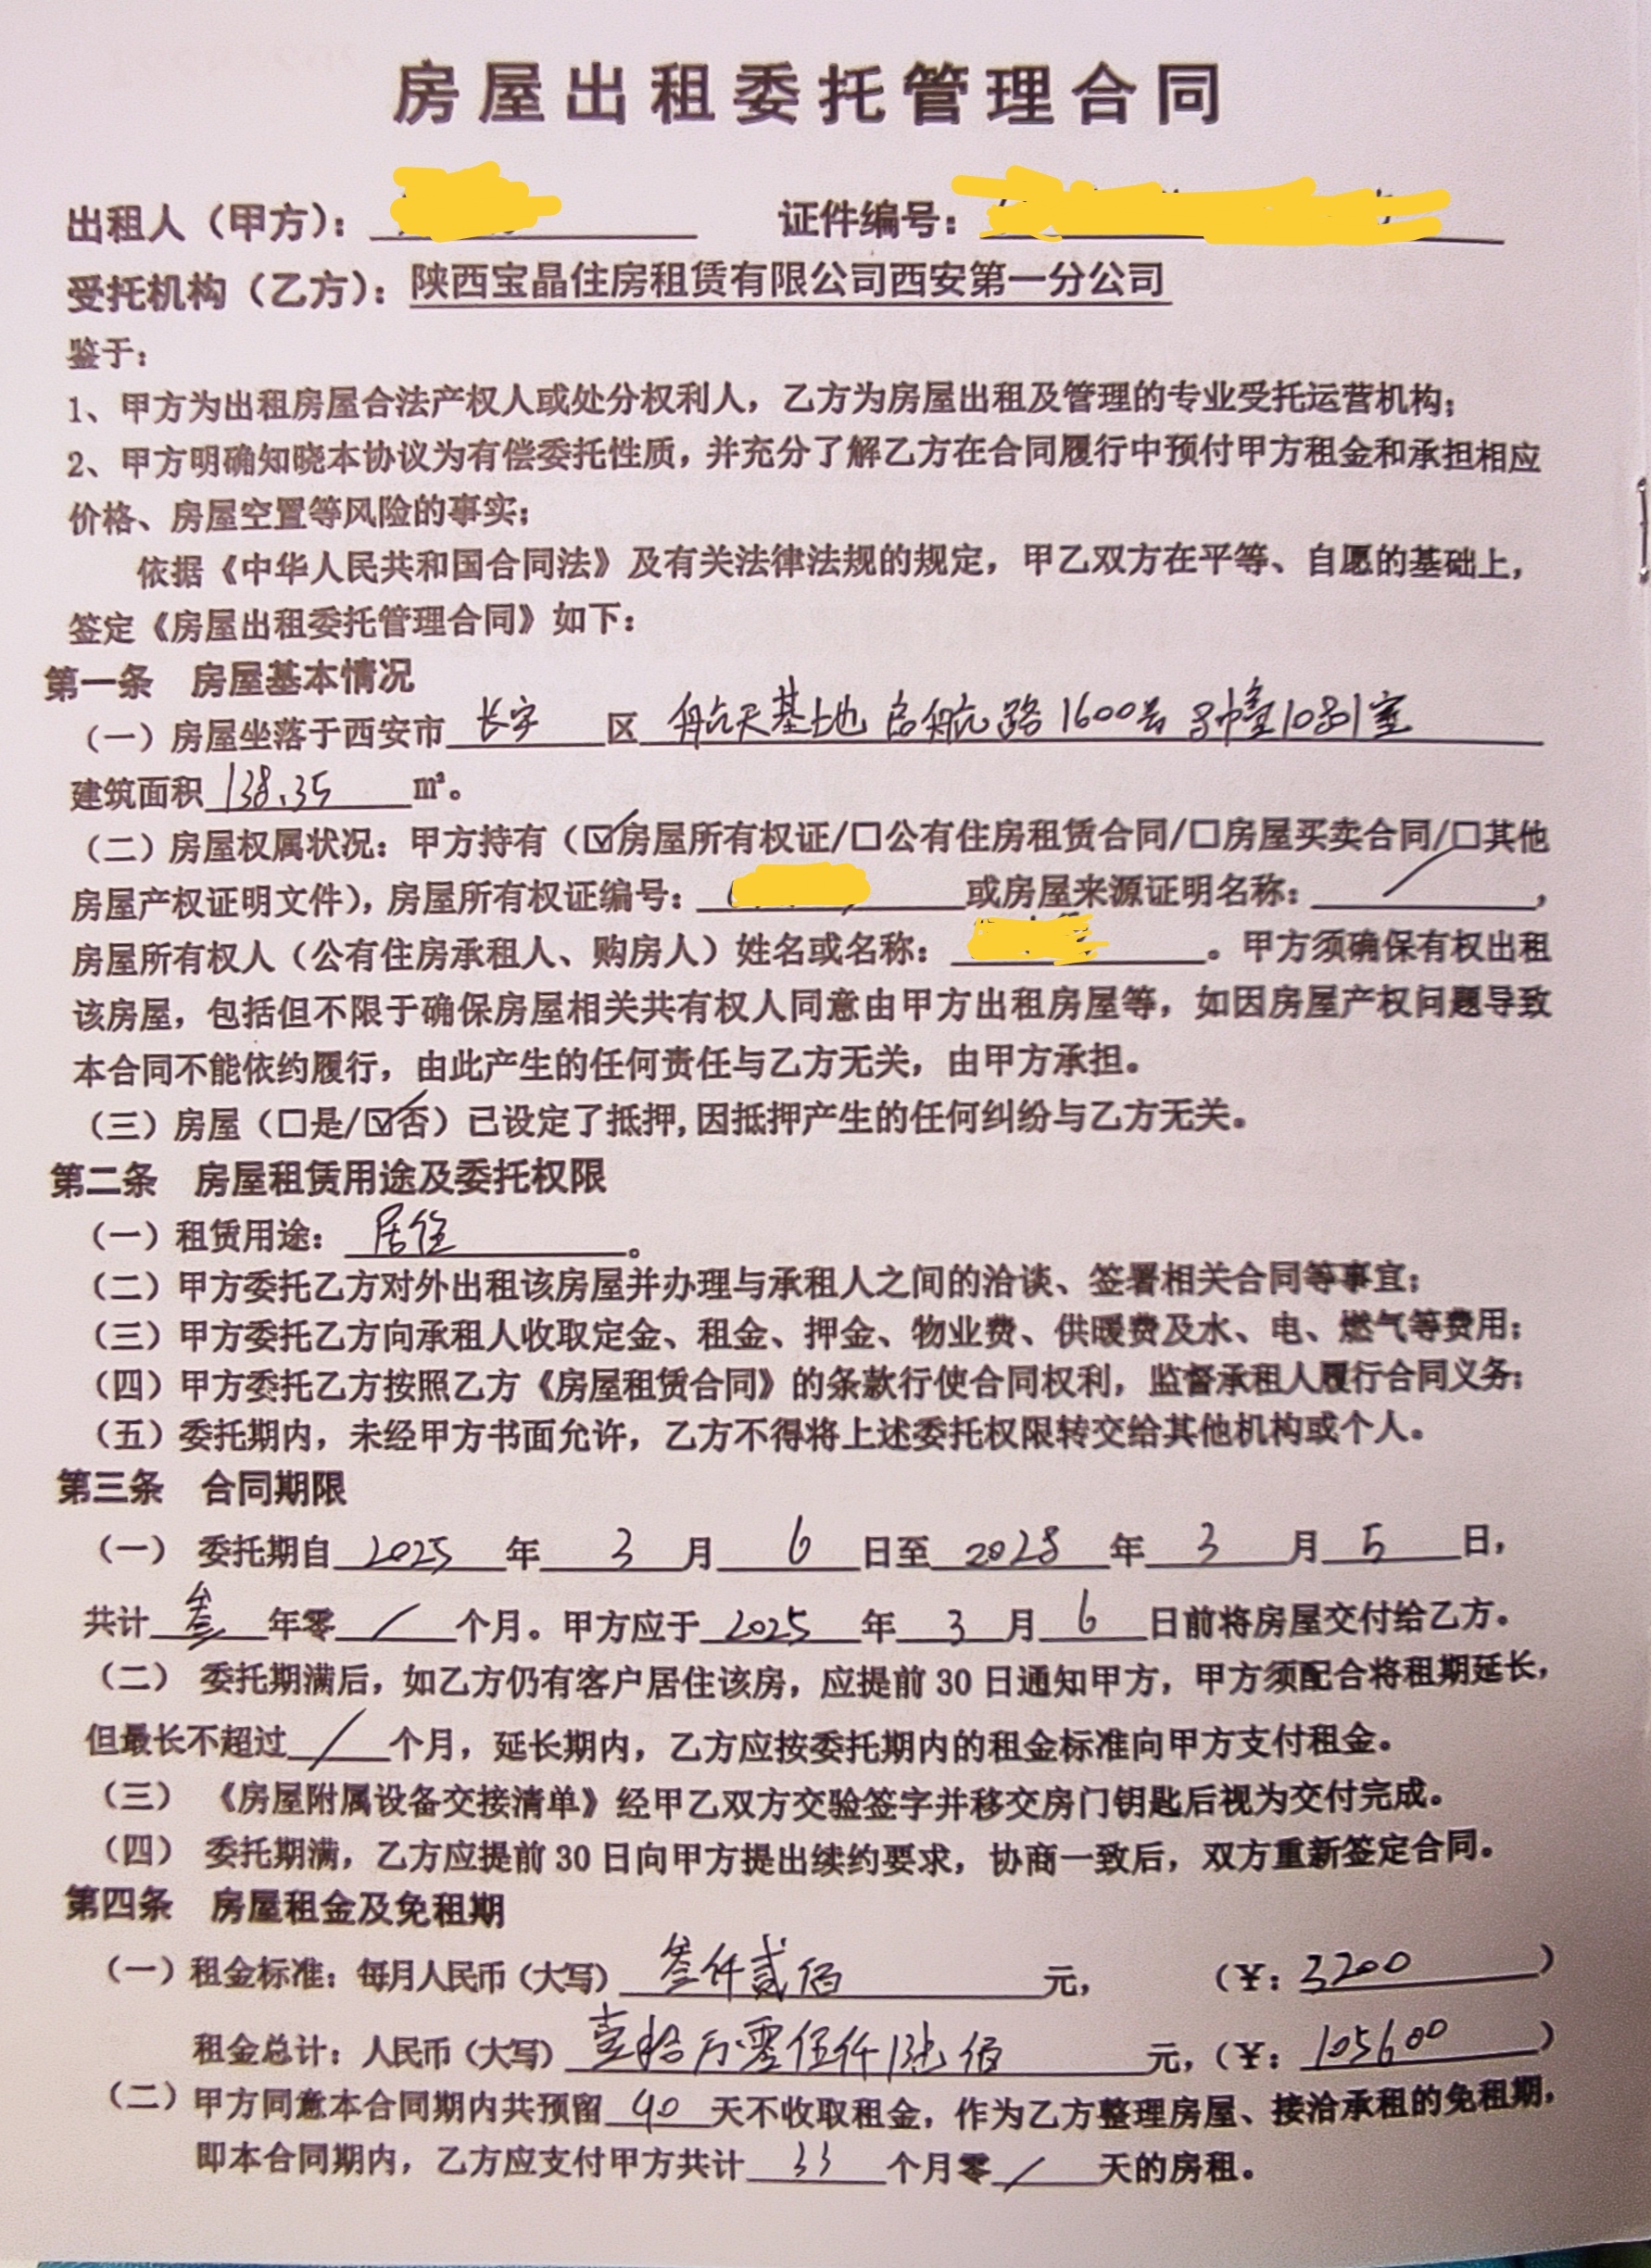 房屋出租委托管理合同
出租人（甲方）： 证件编号：
受托机构（乙方）：陕西宝晶住房租赁有限公司西安第一分公司
鉴于：
1、甲方为出租房屋合法产权人或处分权利人，乙方为房屋出租及管理的专业受托运营机构；
2、甲方明确知晓本协议为有偿委托性质，并充分了解乙方在合同履行中预付甲方租金和承担相应
价格、房屋空置等风险的事实；
依据《中华人民共和国合同法》及有关法律法规的规定，甲乙双方在平等、自愿的基础上，
签定《房屋出租委托管理合同》如下：
第一条 房屋基本情况
（一）房屋坐落于西安市 长安 区 航天基地 启航路1600号 幢 室
建筑面积 138.35 m²。
（二）房屋权属状况：甲方持有（☑房屋所有权证/□公有住房租赁合同/□房屋买卖合同/□其他
房屋产权证明文件），房屋所有权证编号： 或房屋来源证明名称： / ，
房屋所有权人（公有住房承租人、购房人）姓名或名称： 。甲方须确保有权出租
该房屋，包括但不限于确保房屋相关共有权人同意由甲方出租房屋等，如因房屋产权问题导致
本合同不能依约履行，由此产生的任何责任与乙方无关，由甲方承担。
（三）房屋（□是/☑否）已设定了抵押,因抵押产生的任何纠纷与乙方无关。
第二条 房屋租赁用途及委托权限
（一）租赁用途： 居住 。
（二）甲方委托乙方对外出租该房屋并办理与承租人之间的洽谈、签署相关合同等事宜；
（三）甲方委托乙方向承租人收取定金、租金、押金、物业费、供暖费及水、电、燃气等费用；
（四）甲方委托乙方按照乙方《房屋租赁合同》的条款行使合同权利，监督承租人履行合同义务；
（五）委托期内，未经甲方书面允许，乙方不得将上述委托权限转交给其他机构或个人。
第三条 合同期限
（一） 委托期自 2025 年 3 月 6 日至 2028 年 3 月 5 日，
共计 叁 年零 / 个月。甲方应于 2025 年 3 月 6 日前将房屋交付给乙方。
（二） 委托期满后，如乙方仍有客户居住该房，应提前30日通知甲方，甲方须配合将租期延长，
但最长不超过 / 个月，延长期内，乙方应按委托期内的租金标准向甲方支付租金。
（三） 《房屋附属设备交接清单》经甲乙双方交验签字并移交房门钥匙后视为交付完成。
（四） 委托期满，乙方应提前30日向甲方提出续约要求，协商一致后，双方重新签定合同。
第四条 房屋租金及免租期
（一）租金标准：每月人民币（大写） 叁仟贰佰 元， （￥：3200 ）
租金总计：人民币（大写） 壹拾万零伍仟陆佰 元，（￥：105600 ）
（二）甲方同意本合同期内共预留 90 天不收取租金，作为乙方整理房屋、接洽承租的免租期，
即本合同期内，乙方应支付甲方共计 33 个月零 / 天的房租。